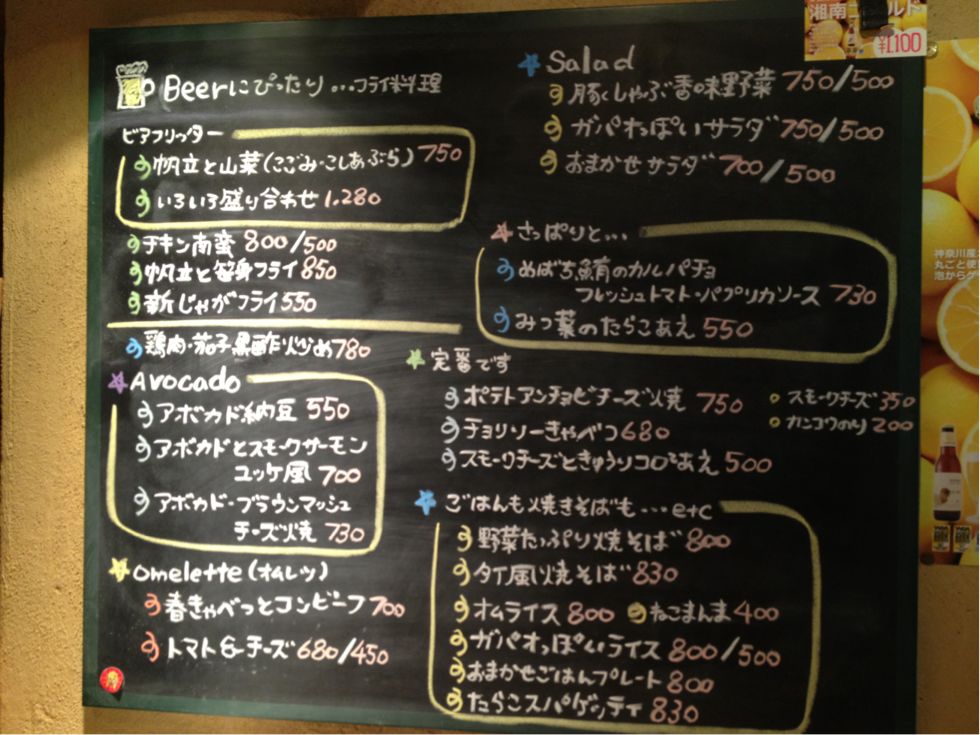 Beerにぴったり...フライ料理
ビアフリッター
帆立と山菜(こごみ・こしあぶら) 750
いろいろ盛り合わせ 1.280
チキン南蛮 800/500
帆立と笹身フライ 850
新じゃがフライ 550
鶏肉・茄子黒酢炒め 780
Avocado
アボカド納豆 550
アボカドとスモークサーモン
ユッケ風 700
アボカド・ブラウンマッシュ
チーズ焼 730
omelette(オムレツ)
春きゃべつとコンビーフ 700
トマト&チーズ 680/450
Salad
豚しゃぶ香味野菜 750/500
ガパオっぽいサラダ 750/500
おまかせサラダ 700/500
さっぱりと...
めばち鮪のカルパチョ
フレッシュトマト・パプリカソース 730
みつ葉のたらこあえ 550
定番です
ポテトアンチョビチーズ焼 750
チョリソーきゃべつ 680
スモークチーズときゅうりコロコロあえ 500
スモークチーズ 350
カンコウのり 200
ごはんも焼きそばも...etc
野菜たっぷり焼そば 800
タイ風焼そば 830
オムライス 800 ねこまんま 400
ガパオっぽいライス 800/500
おまかせごはんプレート 800
たらこスパゲッティ 830
湘南ゴールド
¥1,100
神奈川産
丸ごと使
泡からグ